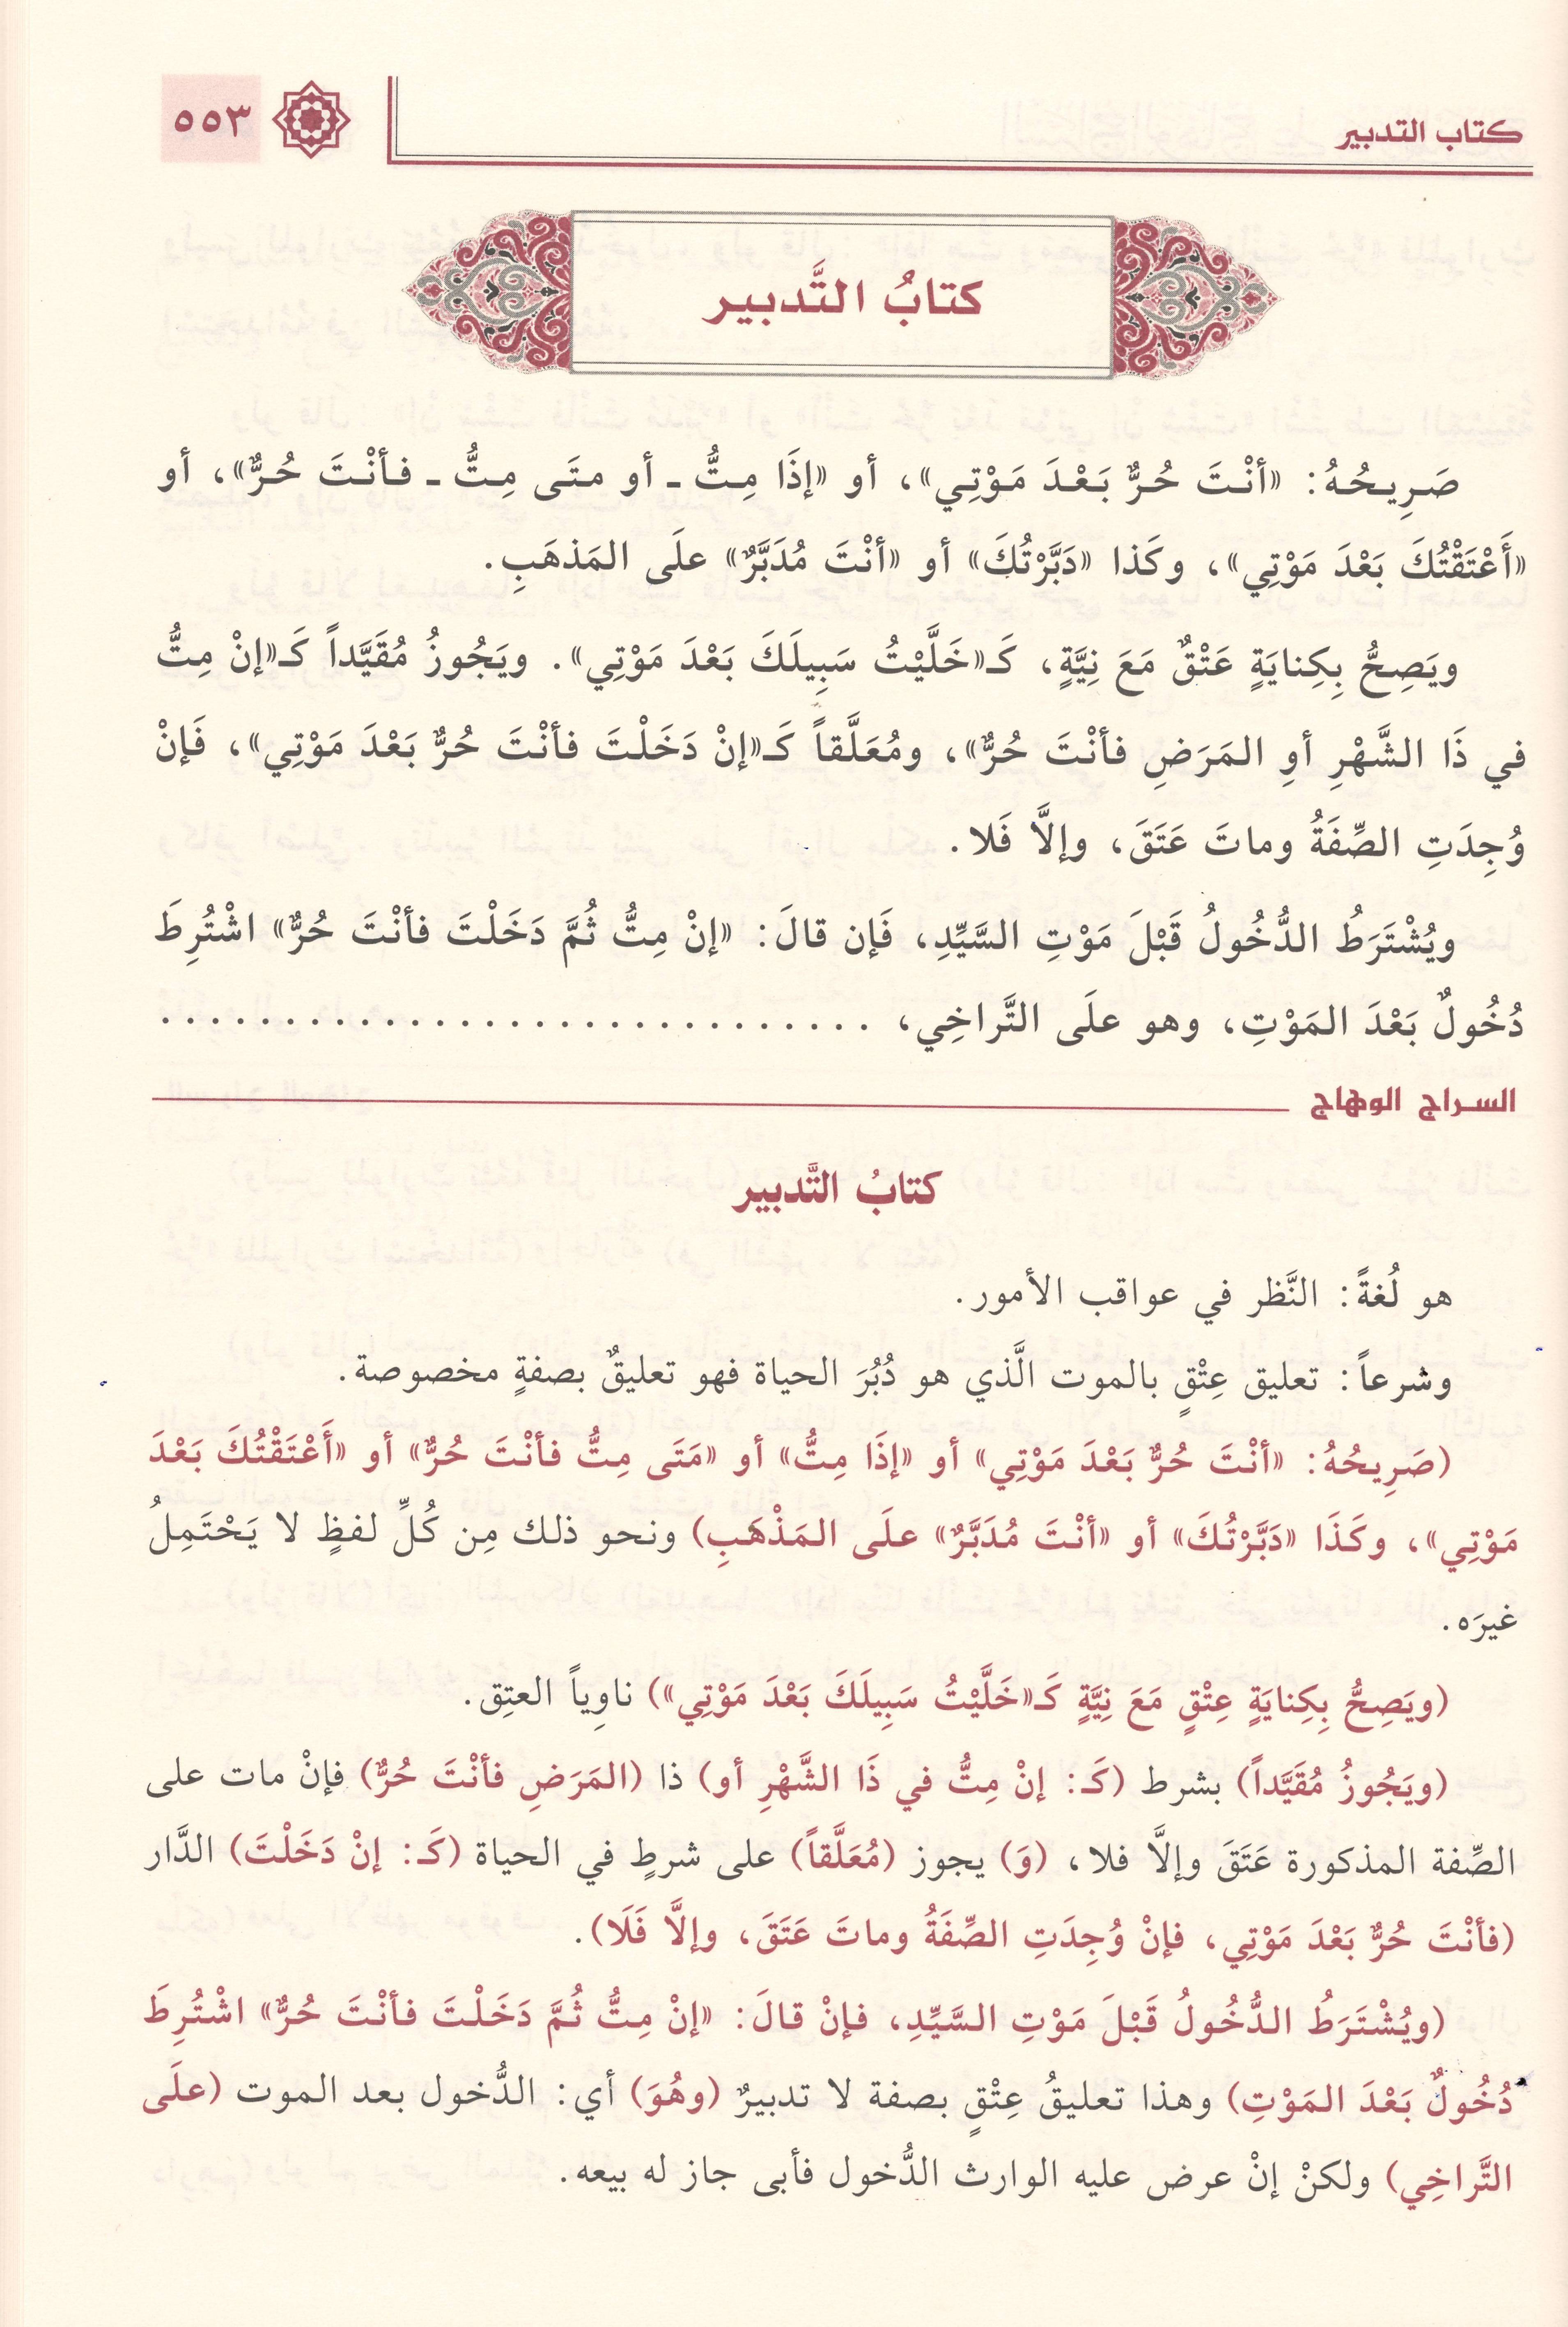 كتاب التدبير ٥٥٣
كتابُ التَّدبير
صَرِيحُهُ: «أنْتَ حُرٌّ بَعْدَ مَوْتِي»، أو «إذَا مِتُّ ـ أو متَى مِتُّ ـ فأنْتَ حُرٌّ»، أو
«أَعْتَقْتُكَ بَعْدَ مَوْتِي»، وكَذا «دَبَّرْتُكَ» أو «أنْتَ مُدَبَّرٌ» علَى المَذهَبِ.
ويَصِحُّ بِكِنايَةٍ عَتْقٌ مَعَ نِيَّةٍ، كَـ«خَلَّيْتُ سَبِيلَكَ بَعْدَ مَوْتِي». ويَجُوزُ مُقَيَّداً كَـ«إنْ مِتُّ
في ذَا الشَّهْرِ أوِ المَرَضِ فأنْتَ حُرٌّ»، ومُعَلَّقاً كَـ«إنْ دَخَلْتَ فأنْتَ حُرٌّ بَعْدَ مَوْتِي»، فَإنْ
وُجِدَتِ الصِّفَةُ وماتَ عَتَقَ، وإلَّا فَلا.
ويُشْتَرَطُ الدُّخُولُ قَبْلَ مَوْتِ السَّيِّدِ، فَإن قالَ: «إنْ مِتُّ ثُمَّ دَخَلْتَ فأنْتَ حُرٌّ» اشْتُرِطَ
دُخُولٌ بَعْدَ المَوْتِ، وهو علَى التَّراخِي، . . . . . . . . . . . . . . . . . . . . . . . . . . . . .
السراج الوهاج
كتابُ التَّدبير
هو لُغةً: النَّظر في عواقب الأمور.
وشرعاً: تعليق عِتْقٍ بالموت الَّذي هو دُبُرَ الحياة فهو تعليقٌ بصفةٍ مخصوصة.
(صَرِيحُهُ: «أنْتَ حُرٌّ بَعْدَ مَوْتِي» أو «إذَا مِتُّ» أو «مَتَى مِتُّ فأنْتَ حُرٌّ» أو «أَعْتَقْتُكَ بَعْدَ
مَوْتِي»، وكَذَا «دَبَّرْتُكَ» أو «أنْتَ مُدَبَّرٌ» علَى المَذْهَبِ) ونحو ذلك مِن كُلِّ لفظٍ لا يَحْتَمِلُ
غيرَه.
(ويَصِحُّ بِكِنايَةٍ عِتْقٍ مَعَ نِيَّةٍ كَـ«خَلَّيْتُ سَبِيلَكَ بَعْدَ مَوْتِي») ناوِياً العتِق.
(ويَجُوزُ مُقَيَّداً) بشرط (كَـ: إنْ مِتُّ في ذَا الشَّهْرِ أو) ذا (المَرَضِ فأنْتَ حُرٌّ) فإنْ مات على
الصِّفة المذكورة عَتَقَ وإلَّا فلا، (وَ) يجوز (مُعَلَّقاً) على شرطٍ في الحياة (كَـ: إنْ دَخَلْتَ) الدَّار
(فأنْتَ حُرٌّ بَعْدَ مَوْتِي، فإنْ وُجِدَتِ الصِّفَةُ وماتَ عَتَقَ، وإلَّا فَلَا).
(ويُشْتَرَطُ الدُّخُولُ قَبْلَ مَوْتِ السَّيِّدِ، فإنْ قالَ: «إنْ مِتُّ ثُمَّ دَخَلْتَ فأنْتَ حُرٌّ» اشْتُرِطَ
دُخُولٌ بَعْدَ المَوْتِ) وهذا تعليقُ عِتْقٍ بصفة لا تدبيرٌ (وهُوَ) أي: الدُّخول بعد الموت (علَى
التَّراخِي) ولكنْ إنْ عرض عليه الوارث الدُّخول فأبى جاز له بيعه.